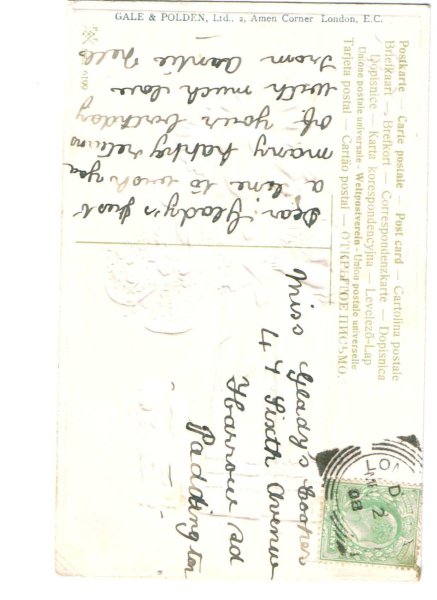 GALE & POLDEN, Ltd., 2, Amen Corner London, E.C.
Postkarte — Carte postale — Post card — Cartolina postale
Briefkaart — Brefkort — Correspondenzkarte — Dopisnica
Dopisnice — Karta korespondencyjna — Levelező-Lap
Unione postale universale - Weltpostverein - Union postale universelle
Tarjeta postal — Cartão postal — ОТКРЫТОЕ ПИСЬМО.
Dear Gladys just
a line to wish you
many happy returns
of your birthday
with much love
from Auntie Nell
Miss Gladys Cooper
47 Sixth Avenue
Harrow Rd
Paddington